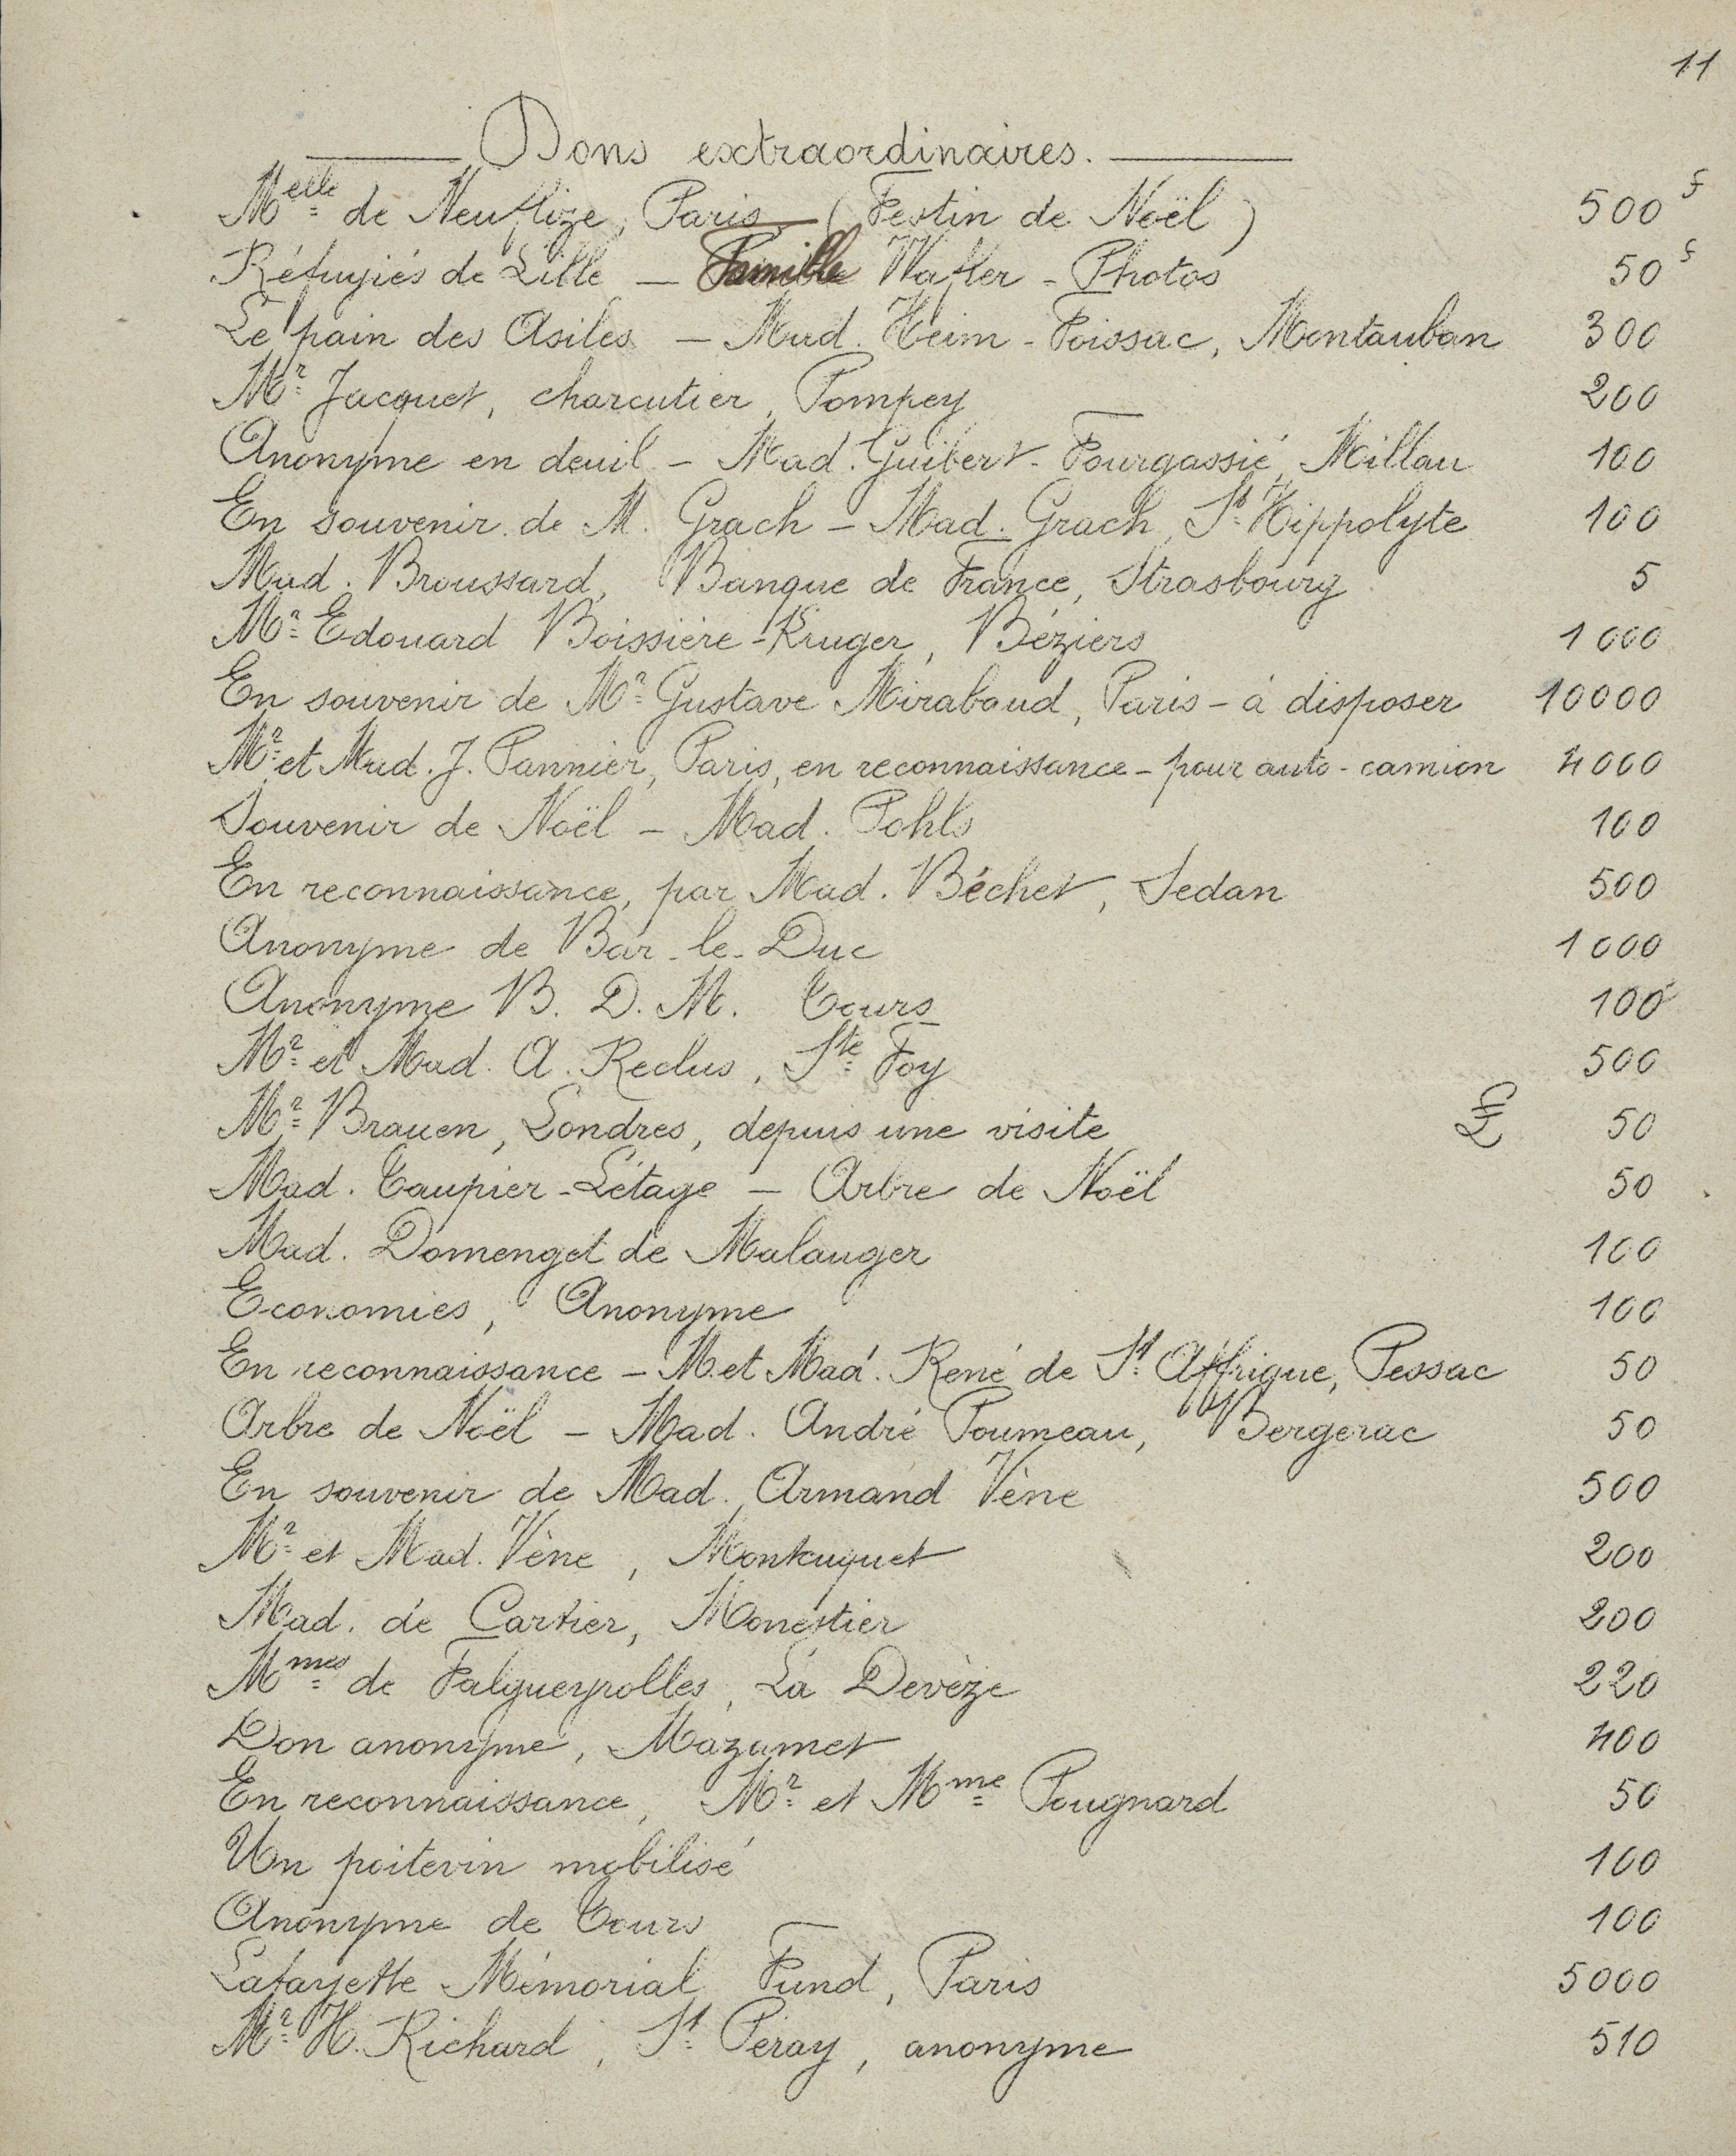 11
Dons extraordinaires.
Melle de Neuflize, Paris (Festin de Noël) 500 f
Réfugiés de Lille — Famille Wafler - Photos 50 f
Le pain des Asiles — Mad. Heim-Foissac, Montauban 300
Mr Jacquet, charcutier, Pompey 200
Anonyme en deuil - Mad. Guibert-Fourgassié, Millau 100
En souvenir de M. Grach - Mad. Grach, St Hippolyte 100
Mad. Broussard, Banque de France, Strasbourg 5
Mr Edouard Boissière-Kruger, Béziers 1 000
En souvenir de Mr Gustave Mirabaud, Paris - à disposer 10000
Mr et Mad. J. Pannier, Paris, en reconnaissance - pour auto-camion 4000
Souvenir de Noël - Mad. Pohls 100
En reconnaissance, par Mad. Béchet, Sedan 500
Anonyme de Bar-le-Duc 1 000
Anonyme B. D. M. Tours 100
Mr et Mad. A. Reclus, Ste Foy 500
Mr Brauen, Londres, depuis une visite £ 50
Mad. Taupier-Létage — Arbre de Noël 50
Mad. Domenget de Malauger 100
Economies, Anonyme 100
En reconnaissance - M. et Mad. René de St Affrique, Pessac 50
Arbre de Noël - Mad. André Poumeau, Bergerac 50
En souvenir de Mad. Armand Vène 500
Mr et Mad. Vène, Montcuquet 200
Mad. de Cartier, Monestier 200
Mmes de Falgueyrolles, La Devèze 220
Don anonyme, Mazamet 400
En reconnaissance, Mr et Mme Pougnard 50
Un poitevin mobilisé 100
Anonyme de Tours 100
Lafayette Mémorial Fund, Paris 5000
Mr H. Richard, St Péray, anonyme 510